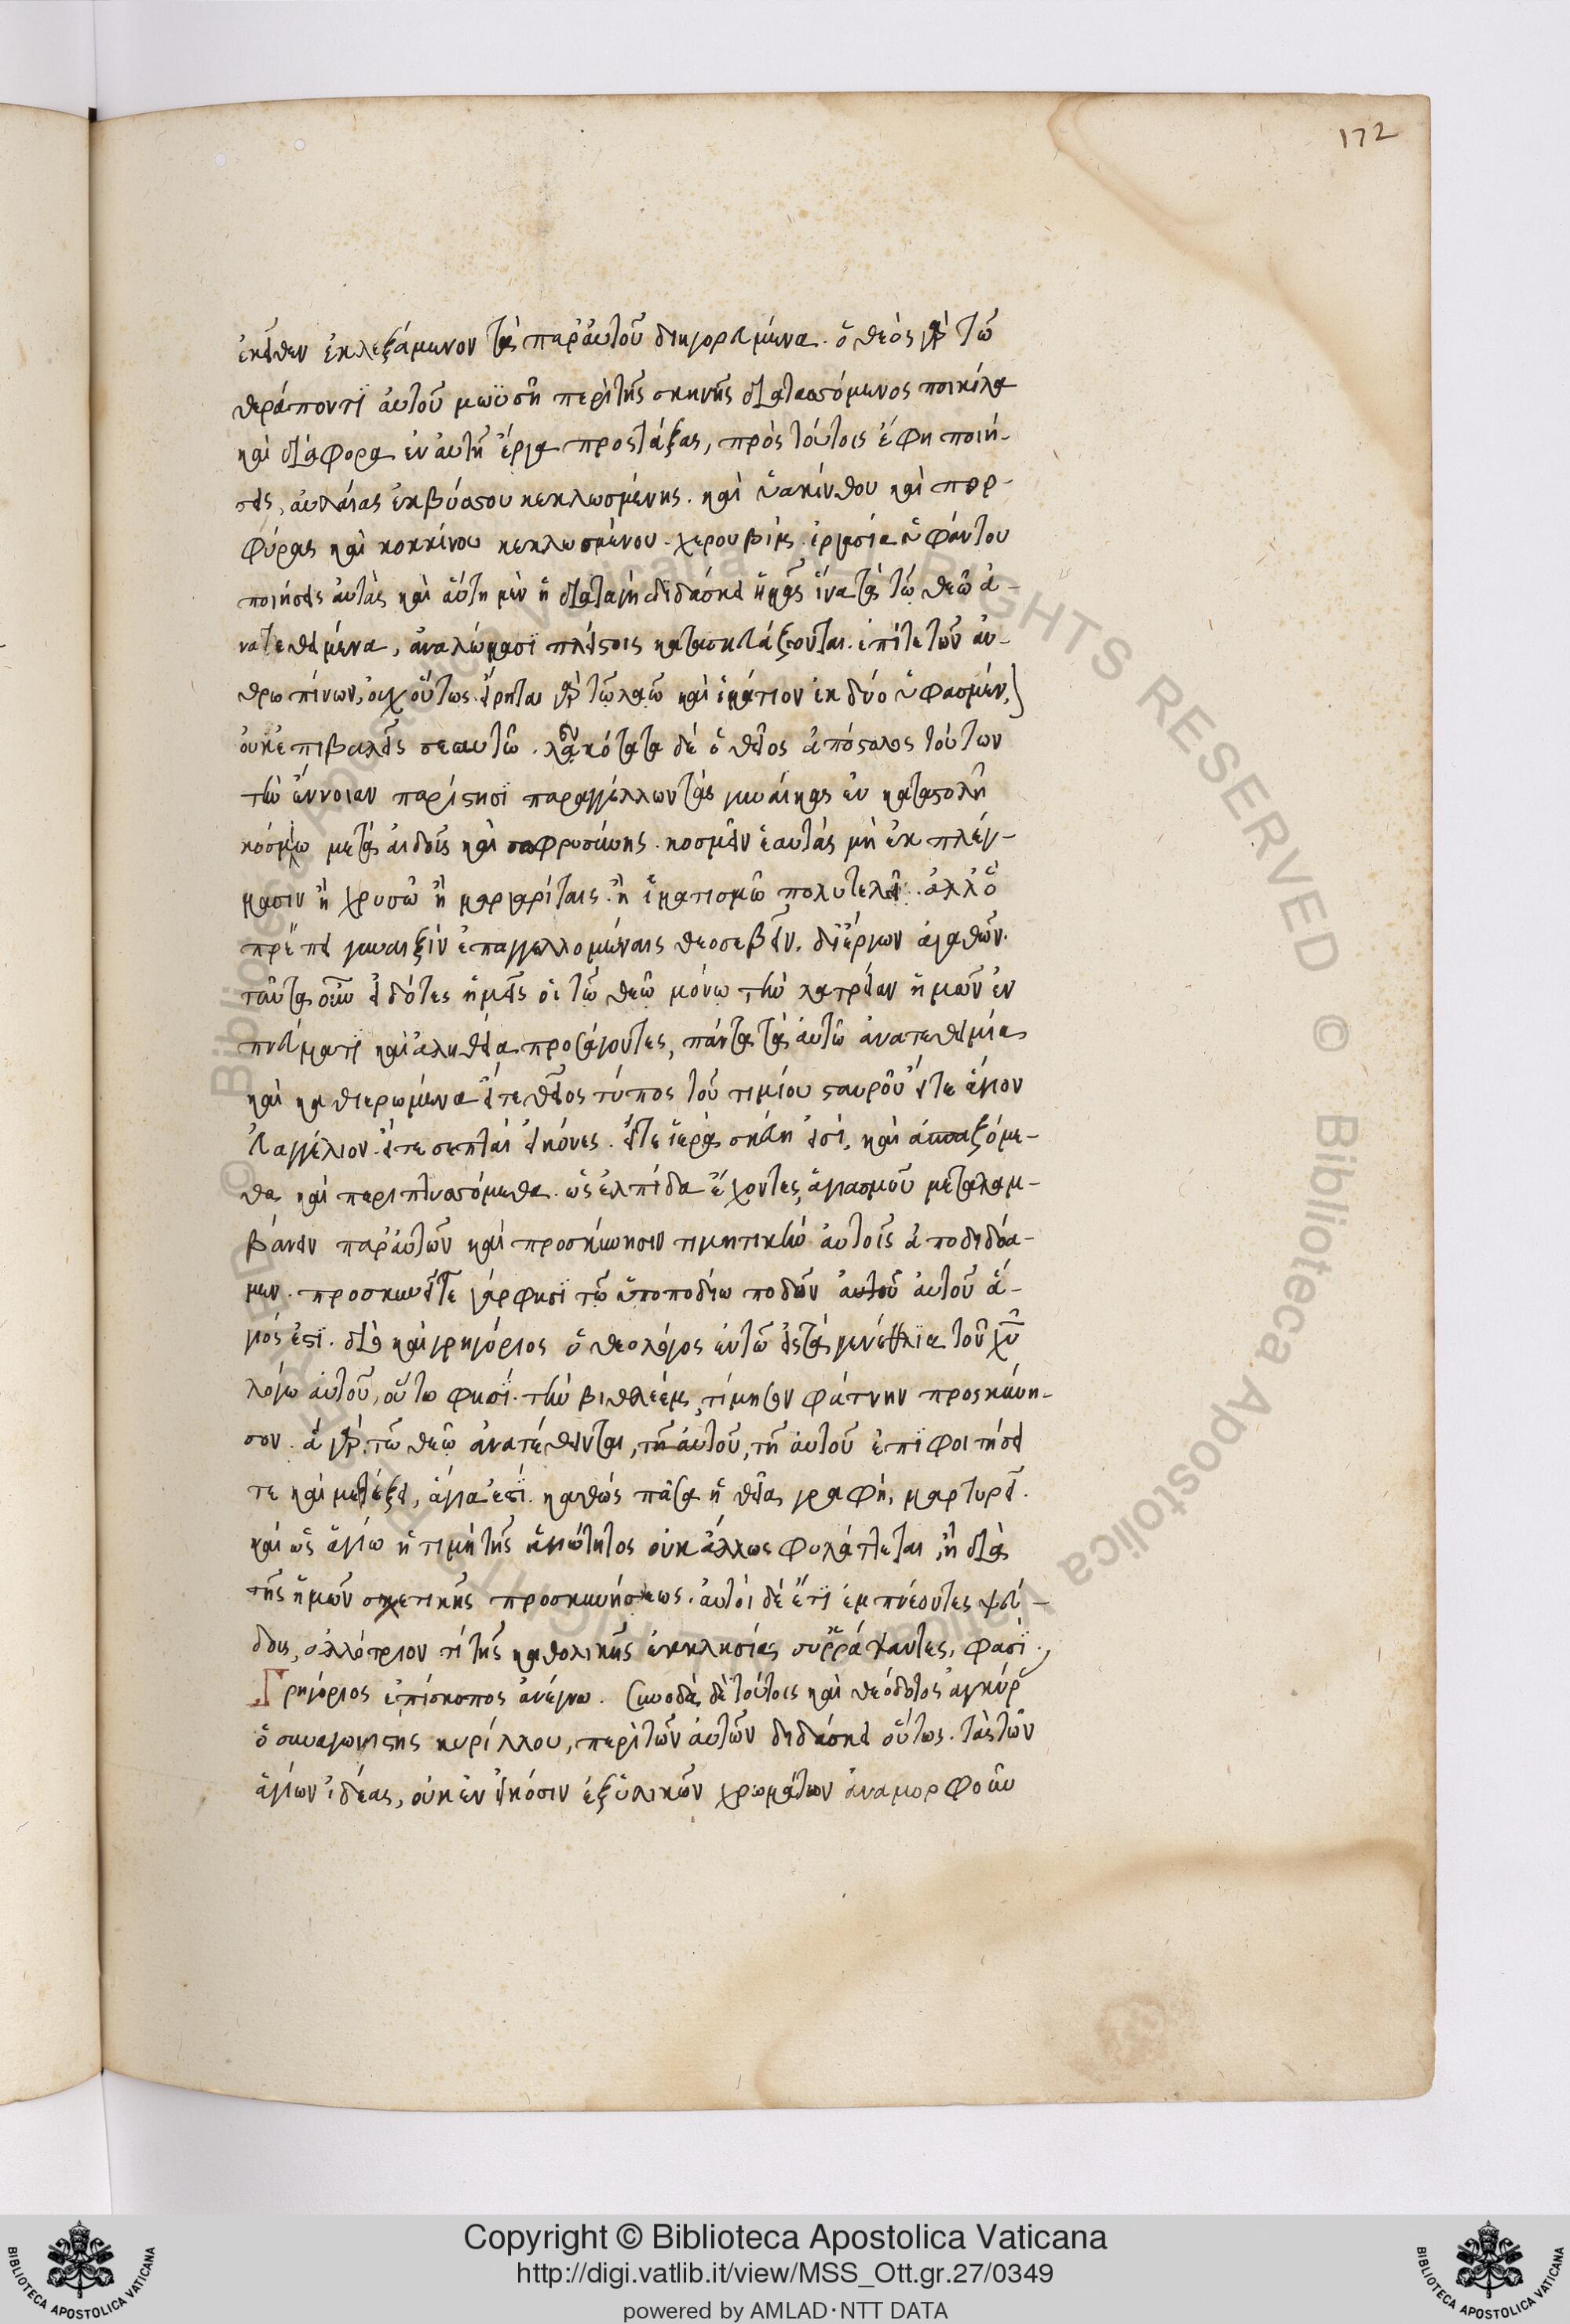 172
ἐκεῖθεν ἐκλεξάμενον τὰ παρ' αὐτοῦ διηγορευμένα. ὁ θεὸς γὰρ τῶ
θεράποντϊ αὐτοῦ μωϋσῆ περὶ τῆς σκηνῆς διατασσόμενος ποικίλα
καὶ διάφορα ἐν αὐτῆ ἔργα προστάξας, πρὸς τούτοις ἔφη ποιή-
σεις, αὐλαίας ἐκ βύσσου κεκλωσμένης. καὶ ὑακίνθου καὶ πορ-
φύρας καὶ κοκκίνου κεκλωσμένου. χερουβὶμ ἐργασία ὑφάντου
ποιήσεις αὐτὰς καὶ αὕτη μὲν ἡ διαταγὴ διδάσκει ἡμᾶς ἵνα τὰ τῶ θεῶ ἀ-
νατεθειμένα, ἀναλώμασϊ πλείστοις κατασκευάζονται. ἐπί τε τῶν ἀν-
θρωπίνων, οὐχ οὕτως. εἴρηται γὰρ τῶ λαῶ καὶ ἱμάτιον ἐκ δύο ὑφασμέν
οὐκ ἐπιβαλεῖς σεαυτῶ. δὲ ὁ θεῖος ἀπόστολος τούτων
τὴν ἔννοιαν παρίστησϊ παραγγέλλων τὰς γυναῖκας ἐν καταστολῆ
κόσμίω μετὰ αἰδοῦς καὶ σωφροσύνης. κοσμεῖν ἑαυτὰς μὴ ἐκ πλέγ-
μασιν ἢ χρυσῶ ἢ μαργαρίταις. ἢ ἱματισμῶ πολυτελεῖ. ἀλλ' ὃ
πρέπει γυναιξὶν ἐπαγγελλομέναις θεοσεβεῖν. δι' ἔργων ἀγαθῶν.
ταῦτα οὖν εἰδότες ἡμεῖς οἱ τῶ θεῶ μόνω τὴν λατρείαν ἡμῶν ἐν
πνεύματϊ καὶ ἀληθεία προσάγοντες, πάντα τὰ αὐτῶ ἀνατεθειμένα
καὶ καθιερωμένα εἴτε θεῖος τύπος τοῦ τιμίου σταυροῦ εἴτε ἅγιον
εὐαγγέλιον. εἴτε σεπταὶ εἰκόνες. εἴτε ἱερὰ σκεύη εἰσὶ, καὶ ἀσπαζόμε-
θα καὶ περιπτυσσόμεθα. ὡς ἐλπίδα ἔχοντες ἁγιασμοῦ μεταλαμ-
βάνειν παρ' αὐτῶν καὶ προσκύνησιν τιμητικὴν αὐτοῖς ἀποδιδόα-
μεν. προσκυνεῖτε γάρ φησϊ τῶ ὑποποδίω ποδῶν αὐτοῦ αὐτοῦ ἅ-
γιός ἐστϊ. διὸ καὶ γρηγόριος ὁ θεολόγος ἐν τῶ εἰς τὰ γενέθλϊα τοῦ χυ
λόγω αὐτοῦ, οὕτω φησϊ. τὴν βιθλεὲμ τίμησον φάτνην προσκύνη-
σον. ἃ γὰρ τῶ θεῶ ἀνατέθεινται, τῆ αὐτοῦ, τῆ αὐτοῦ ἐπϊφοιτήσει
τε καὶ μεθέξει, ἅγια ἐστϊ. καθὼς πᾶσα ἡ θεία γραφὴ, μαρτυρεῖ.
καὶ ὡς ἁγίω ἡ τιμὴ τῆς ἁγιότητος οὐκ ἄλλως φυλάττεται, ἢ διὰ
τῆς ἡμῶν σχετικῆς προσκυνήσεως. αὐτοὶ δὲ ἔτϊ ἐμπνέοντες ψεύ-
δους, ἀλλότριον τί τῆς καθολικῆς ἐκκλησίας συρράψαντες, φασϊ.
Γρηγόριος ἐπίσκοπος ἀνέγνω. Συνωδὰ δὲ τούτοις καὶ θεόδοτος ἀγκύρ
ὁ συναγωνιστὴς κυρίλλου, περὶ τῶν αὐτῶν διδάσκει οὕτως. τὰς τῶν
ἁγίων ἰδέας, οὐκ ἐν εἰκόσιν ἐξ ὑλικῶν χρωμάτων ἀναμορφοῦν
© Biblioteca Apostolica Vaticana ALL RIGHTS RESERVED
Copyright © Biblioteca Apostolica Vaticana
http://digi.vatlib.it/view/MSS_Ott.gr.27/0349
powered by AMLAD·NTT DATA
BIBLIOTECA APOSTOLICA VATICANA
BIBLIOTECA APOSTOLICA VATICANA